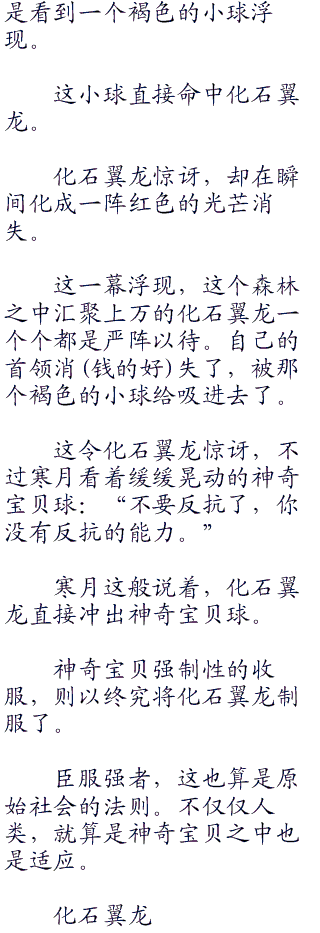 是看到一个褐色的小球浮
现。
这小球直接命中化石翼
龙。
化石翼龙惊讶，却在瞬
间化成一阵红色的光芒消
失。
这一幕浮现，这个森林
之中汇聚上万的化石翼龙一
个个都是严阵以待。自己的
首领消(钱的好)失了，被那
个褐色的小球给吸进去了。
这令化石翼龙惊讶，不
过寒月看着缓缓晃动的神奇
宝贝球：“不要反抗了，你
没有反抗的能力。”
寒月这般说着，化石翼
龙直接冲出神奇宝贝球。
神奇宝贝强制性的收
服，则以终究将化石翼龙制
服了。
臣服强者，这也算是原
始社会的法则。不仅仅人
类，就算是神奇宝贝之中也
是适应。
化石翼龙